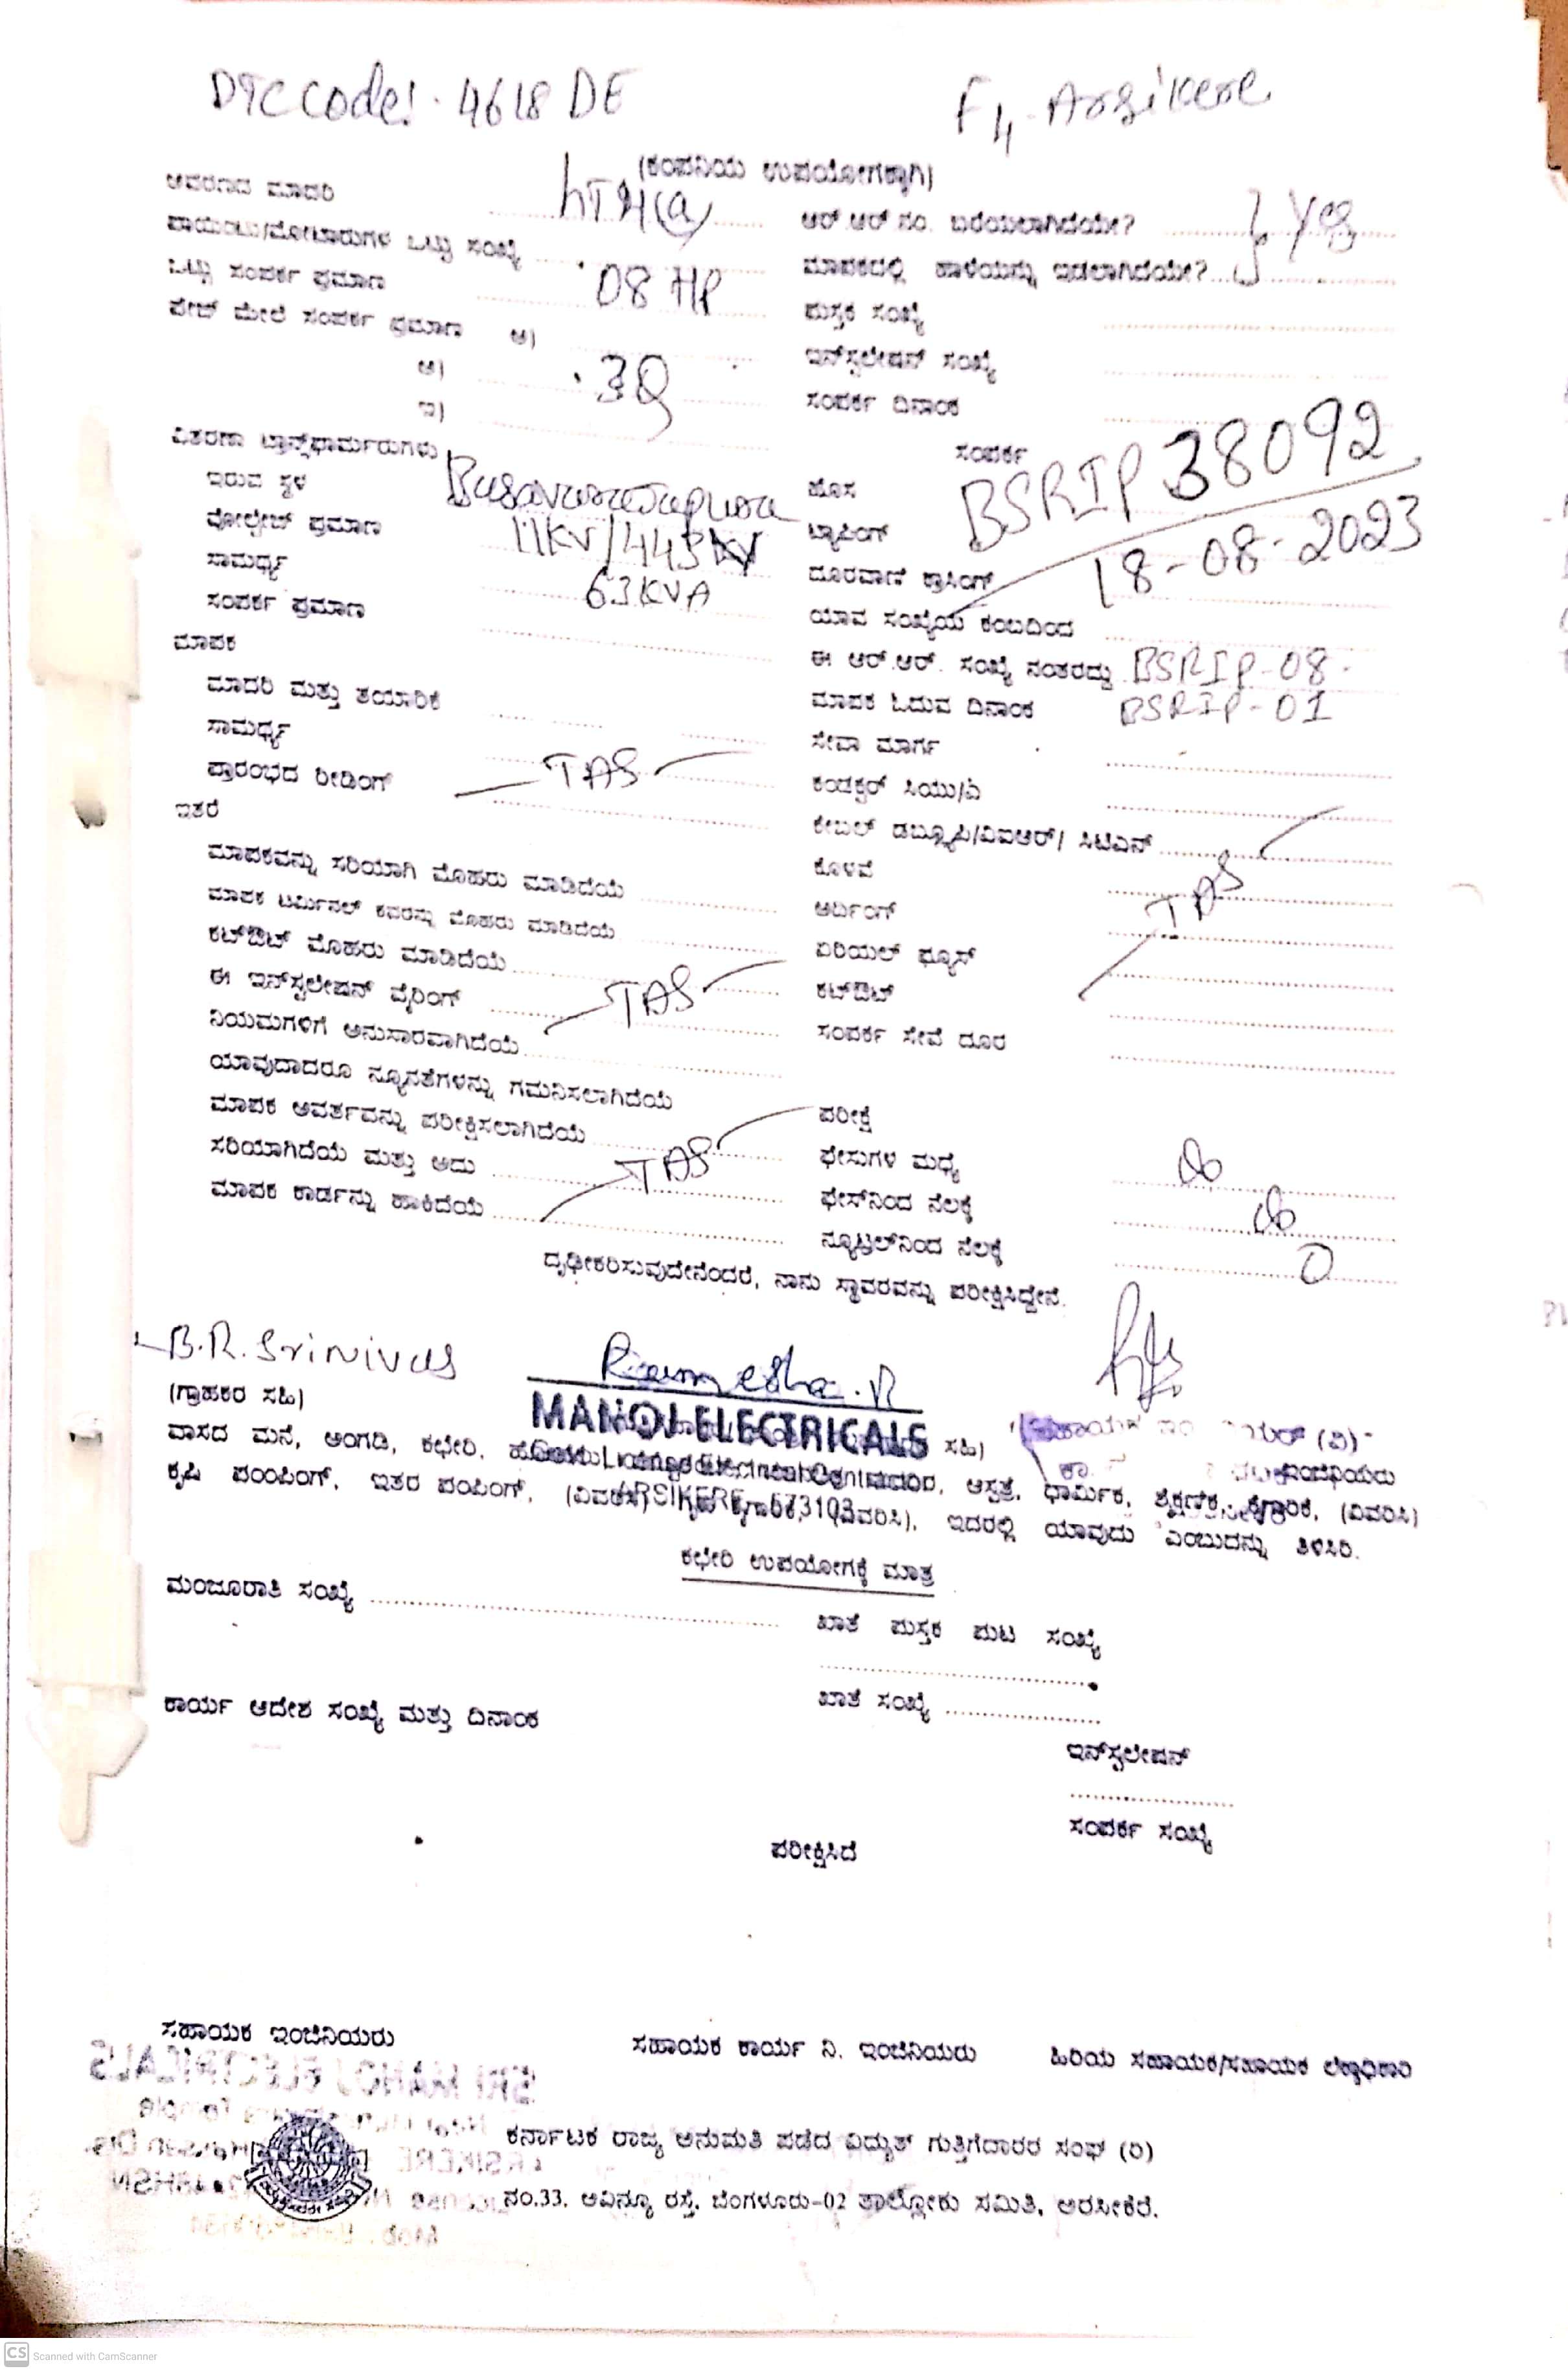 DTC Code: 4618 DE
F4-Arsikere
(ಕಂಪನಿಯ ಉಪಯೋಗಕ್ಕಾಗಿ)
ಆವರಣದ ಮಾದರಿ
ಆರ್.ಆರ್.ನಂ. ಬರೆಯಲಾಗಿದೆಯೇ? } Yes
ಪಾಯಿಂಟು/ಮೋಟಾರುಗಳ ಒಟ್ಟು ಸಂಖ್ಯೆ
ಮಾಪಕದಲ್ಲಿ ಹಾಳೆಯನ್ನು ಇಡಲಾಗಿದೆಯೇ?
ಒಟ್ಟು ಸಂಪರ್ಕ ಪ್ರಮಾಣ 08 HP
ಪುಸ್ತಕ ಸಂಖ್ಯೆ
ಪೇಜ್ ಮೇಲೆ ಸಂಪರ್ಕ ಪ್ರಮಾಣ ಅ)
ಇನ್‌ಸ್ಟಲೇಷನ್ ಸಂಖ್ಯೆ
ಆ)
ಸಂಪರ್ಕ ದಿನಾಂಕ
ಇ)
ವಿತರಣಾ ಟ್ರಾನ್ಸ್‌ಫಾರ್ಮರುಗಳು
ಸಂಪರ್ಕ
ಇರುವ ಸ್ಥಳ
ಹೊಸ BSRIP 38092
ವೋಲ್ಟೇಜ್ ಪ್ರಮಾಣ 11KV/
ಟ್ಯಾಪಿಂಗ್ 18-08-2023
ಸಾಮರ್ಥ್ಯ 63KVA
ದೂರವಾಣಿ ಕ್ರಾಸಿಂಗ್
ಸಂಪರ್ಕ ಪ್ರಮಾಣ
ಯಾವ ಸಂಖ್ಯೆಯ ಕಂಬದಿಂದ
ಮಾಪಕ
ಈ ಆರ್.ಆರ್. ಸಂಖ್ಯೆ ನಂತರದ್ದು BSRIP-08
ಮಾದರಿ ಮತ್ತು ತಯಾರಿಕೆ
ಮಾಪಕ ಓದುವ ದಿನಾಂಕ BSRIP-01
ಸಾಮರ್ಥ್ಯ
ಸೇವಾ ಮಾರ್ಗ
ಪ್ರಾರಂಭದ ರೀಡಿಂಗ್ TAS
ಕಂಡಕ್ಟರ್ ಸಿಯು/ಎ
ಇತರೆ
ಕೇಬಲ್ ಡಬ್ಲ್ಯೂಪಿ/ವಿಐಆರ್/ ಸಿಟಿಎನ್
ಮಾಪಕವನ್ನು ಸರಿಯಾಗಿ ಮೊಹರು ಮಾಡಿದೆಯೆ
ಕೊಳವೆ
ಮಾಪಕ ಟರ್ಮಿನಲ್ ಕವರನ್ನು ಮೊಹರು ಮಾಡಿದೆಯೆ
ಅರ್ದಿಂಗ್ TAS
ಕಟ್‌ಔಟ್ ಮೊಹರು ಮಾಡಿದೆಯೆ
ಏರಿಯಲ್ ಫ್ಯೂಸ್
ಈ ಇನ್‌ಸ್ಟಲೇಷನ್ ವೈರಿಂಗ್ TAS
ಕಟ್‌ಔಟ್
ನಿಯಮಗಳಿಗೆ ಅನುಸಾರವಾಗಿದೆಯೆ
ಸಂಪರ್ಕ ಸೇವೆ ದೂರ
ಯಾವುದಾದರೂ ನ್ಯೂನತೆಗಳನ್ನು ಗಮನಿಸಲಾಗಿದೆಯೆ
ಮಾಪಕ ಆವರ್ತವನ್ನು ಪರೀಕ್ಷಿಸಲಾಗಿದೆಯೆ
ಪರೀಕ್ಷೆ
ಸರಿಯಾಗಿದೆಯೆ ಮತ್ತು ಅದು TAS
ಫೇಸುಗಳ ಮಧ್ಯೆ
ಮಾಪಕ ಕಾರ್ಡನ್ನು ಹಾಕಿದೆಯೆ
ಫೇಸ್‌ನಿಂದ ನೆಲಕ್ಕೆ
ನ್ಯೂಟ್ರಲ್‌ನಿಂದ ನೆಲಕ್ಕೆ 0
ದೃಢೀಕರಿಸುವುದೇನೆಂದರೆ, ನಾನು ಸ್ಥಾವರವನ್ನು ಪರೀಕ್ಷಿಸಿದ್ದೇನೆ.
B.R. Srinivas
Ramesha.R
(ಗ್ರಾಹಕರ ಸಹಿ)
MANOJ ELECTRICALS
ಸಹಿ)
ವಾಸದ ಮನೆ, ಅಂಗಡಿ, ಕಛೇರಿ, ಆಸ್ಪತ್ರೆ, ಧಾರ್ಮಿಕ, ಶೈಕ್ಷಣಿಕ, ಕೈಗಾರಿಕೆ, (ವಿವರಿಸಿ)
ARSIKERE-573103
ಕೃಷಿ ಪಂಪಿಂಗ್, ಇತರ ಪಂಪಿಂಗ್, (ವಿವರಿಸಿ), ಇದರಲ್ಲಿ ಯಾವುದು ಎಂಬುದನ್ನು ತಿಳಿಸಿರಿ.
ಕಛೇರಿ ಉಪಯೋಗಕ್ಕೆ ಮಾತ್ರ
ಮಂಜೂರಾತಿ ಸಂಖ್ಯೆ
ಖಾತೆ ಪುಸ್ತಕ ಪುಟ ಸಂಖ್ಯೆ
ಖಾತೆ ಸಂಖ್ಯೆ
ಕಾರ್ಯ ಆದೇಶ ಸಂಖ್ಯೆ ಮತ್ತು ದಿನಾಂಕ
ಇನ್‌ಸ್ಟಲೇಷನ್
ಸಂಪರ್ಕ ಸಂಖ್ಯೆ
ಪರೀಕ್ಷಿಸಿದೆ
ಸಹಾಯಕ ಇಂಜಿನಿಯರು
ಸಹಾಯಕ ಕಾರ್ಯ ನಿ. ಇಂಜಿನಿಯರು
ಹಿರಿಯ ಸಹಾಯಕ/ಸಹಾಯಕ ಲೆಕ್ಕಾಧಿಕಾರಿ
ಕರ್ನಾಟಕ ರಾಜ್ಯ ಅನುಮತಿ ಪಡೆದ ವಿದ್ಯುತ್ ಗುತ್ತಿಗೆದಾರರ ಸಂಘ (ರಿ)
ನಂ.33, ಅವಿನ್ಯೂ ರಸ್ತೆ, ಬೆಂಗಳೂರು-02 ತಾಲ್ಲೋಕು ಸಮಿತಿ, ಅರಸೀಕೆರೆ.
CS Scanned with CamScanner